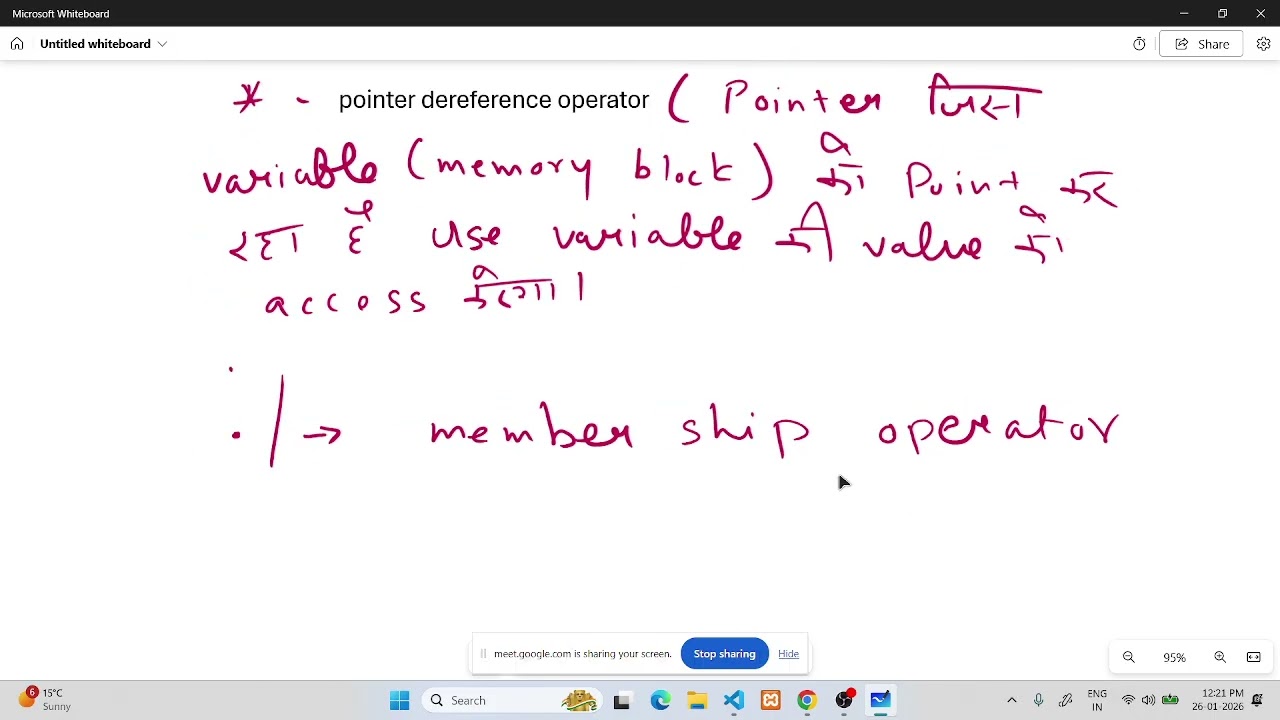 Microsoft Whiteboard
Untitled whiteboard
Share
* - pointer dereference operator ( Pointer जिस
variable (memory block) को Point कर
रहा है use variable की value को
access करेगा।
. / → member ship operator
meet.google.com is sharing your screen. Stop sharing Hide
95%
6 15°C
Sunny
Search
ENG
IN
12:21 PM
26-01-2026